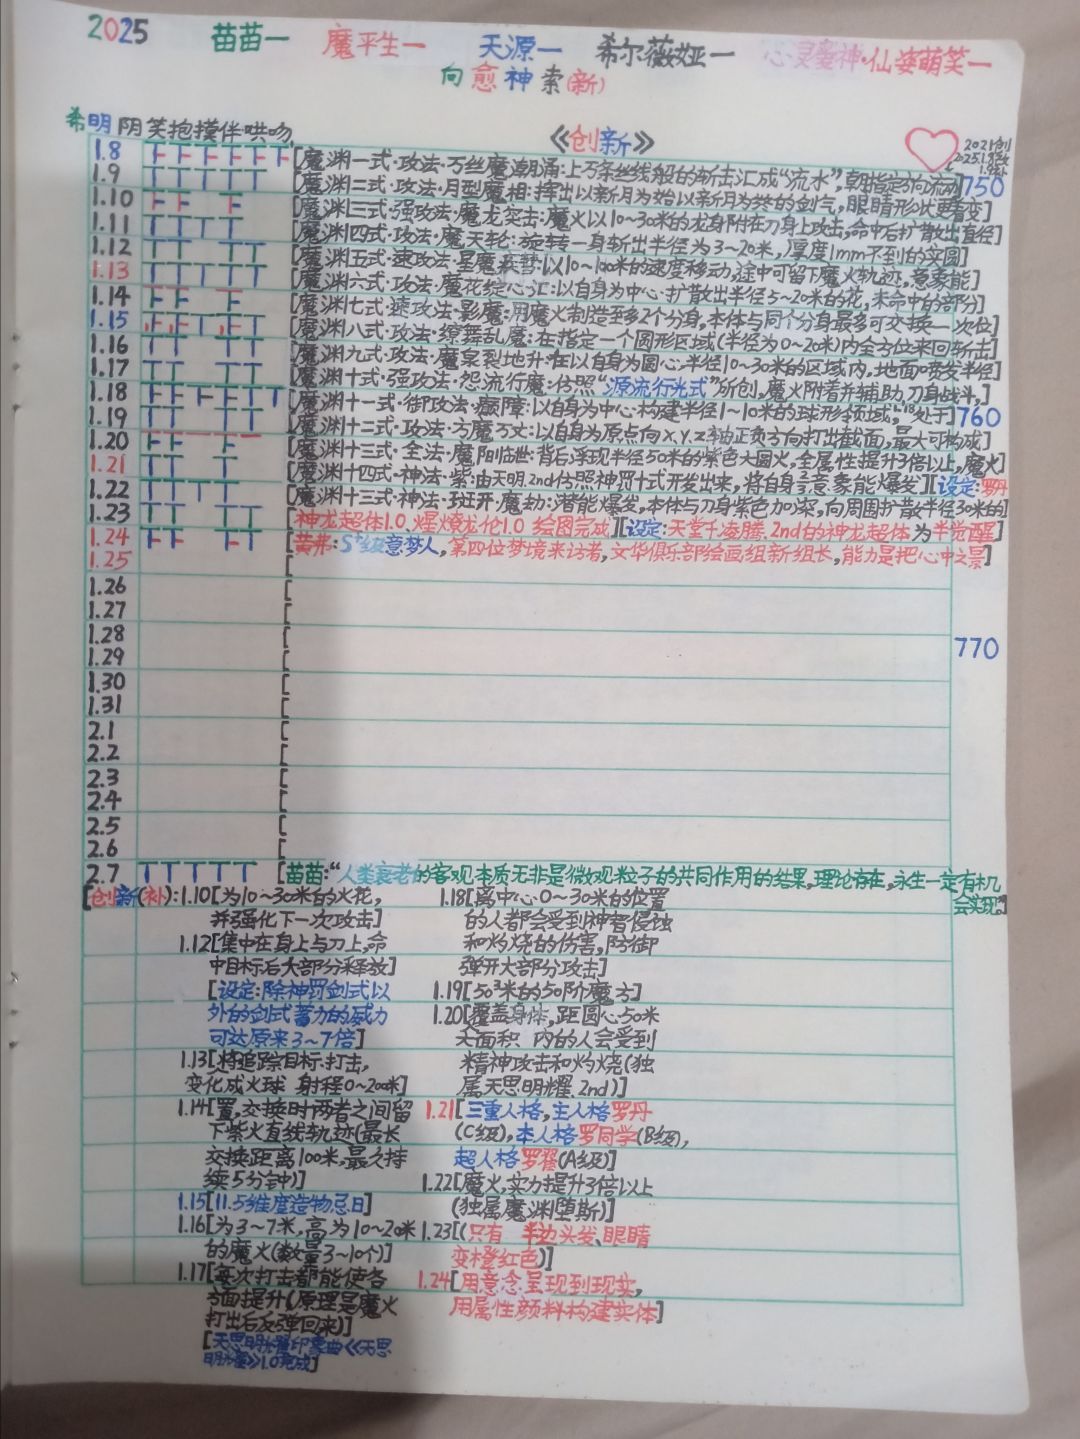 2025 苗苗一 魔平生一 天源一 希尔薇娅一 心灵蔓神·仙姿萌笑一
向愈神索(新)
希明阴笑抱摸伴哄吻 《创新》 2021创
1.8 [魔渊一式·攻法·万丝魔潮涌:上万条丝线般的斩击汇成“流水”,朝指定方向流动] 750
1.9 [魔渊二式·攻法·月型魔相:挥出以新月为始以新月为终的剑气,眼睛形状更替变]
1.10 [魔渊三式·强攻法·魔龙突击:魔火以10~30米的龙身附在身上攻击,命中后扩散出直径]
1.11 [魔渊四式·攻法·魔天轮:旋转一身斩出半径为3~20米,厚度1mm不到的实圆]
1.12 [魔渊五式·速攻法·星魔:以10~100米的速度移动,途中可留下魔火轨迹,意象能]
1.13 [魔渊六式·攻法·魔花绽心汇:以自身为中心扩散出半径5~20米的花,未命中的部分]
1.14 [魔渊七式·速攻法·影魔:用魔火制造至多2个分身,本体与同个分身最多可交换一次位]
1.15 [魔渊八式·攻法·缭舞乱魔:在指定一个圆形区域(半径为0~20米)内全方位来回斩击]
1.16 [魔渊九式·攻法·魔泉裂地升:在以自身为圆心,半径10~30米的区域内,地面喷发半径]
1.17 [魔渊十式·强攻法·怨流行魔:仿照“源流行光式”所创,魔火附着并辅助刀身战斗,]
1.18 [魔渊十一式·御攻法·魔障:以自身为中心构建半径1~10米的球形领域,“处于] 760
1.19 [魔渊十二式·攻法·方魔万丈:以自身为原点向x.y.z轴正负方向打出截面,最大可构成]
1.20 [魔渊十三式·全法·魔阳临世:背后浮现半径50米的紫色大圆火,全属性提升3倍以上,魔火]
1.21 [魔渊十四式·神法·紫:由天明.2nd仿照神罚十式开发出来,将自身意象能爆发][设定:罗丹
1.22 [魔渊十三式·神法·班开·魔劫:潜能爆发,本体与刀身紫色加深,向周围扩散半径30米的
1.23 [神龙超体1.0.煌燎龙伦1.0 绘图完成][设定:天堂千凌腾.2nd的神龙超体为半觉醒]
1.24 [黄弗:S⁺级意梦人,第四位梦境来访者,文华俱乐部绘画组新组长,能力是把心中之景]
1.25 [
1.26 [
1.27 [
1.28 [
1.29 [ 770
1.30 [
1.31 [
2.1 [
2.2 [
2.3 [
2.4 [
2.5 [
2.6 [
2.7 [苗苗:“人类衰老的客观本质无非是微观粒子的共同作用的结果,理论存在,永生一定有机
会实现”]
[创新(补):1.10[为10~30米的火花,
并强化下一次攻击]
1.12[集中在身上与刀上,命
中目标后大部分释放]
[设定:除神罚剑式以
外的剑式蓄力的威力
可达原来3~7倍]
1.13[将追踪目标打击,
变化成火球 射程0~200米]
1.14[置,交换时两者之间留
下紫火直线轨迹(最长
交换距离100米,最久持
续5分钟)]
1.15[11.5维度造物忌日]
1.16[为3~7米,高为10~20米
的魔火(数量3~10个)]
1.17[每次打击都能使各
方面提升(原理是魔火
打出后反弹回来)]
[天思明耀印象曲《天思
明耀》1.0完成]
1.18[离中心0~30米的位置
的人都会受到神智侵蚀
和灼烧的伤害,防御
弹开大部分攻击]
1.19[50³米的50阶魔方]
1.20[覆盖身体,距圆心50米
面积 内的人会受到
精神攻击和灼烧(独
属天思明耀.2nd)]
1.21[三重人格,主人格罗丹
(C级),本人格罗同学(B级),
超人格罗(A级)]
1.22[魔火,实力提升3倍以上
(独属魔渊堕斯)]
1.23[(只有 半边头发、眼睛
变橙红色)]
1.24[用意念呈现到现实,
用属性颜料构建实体]